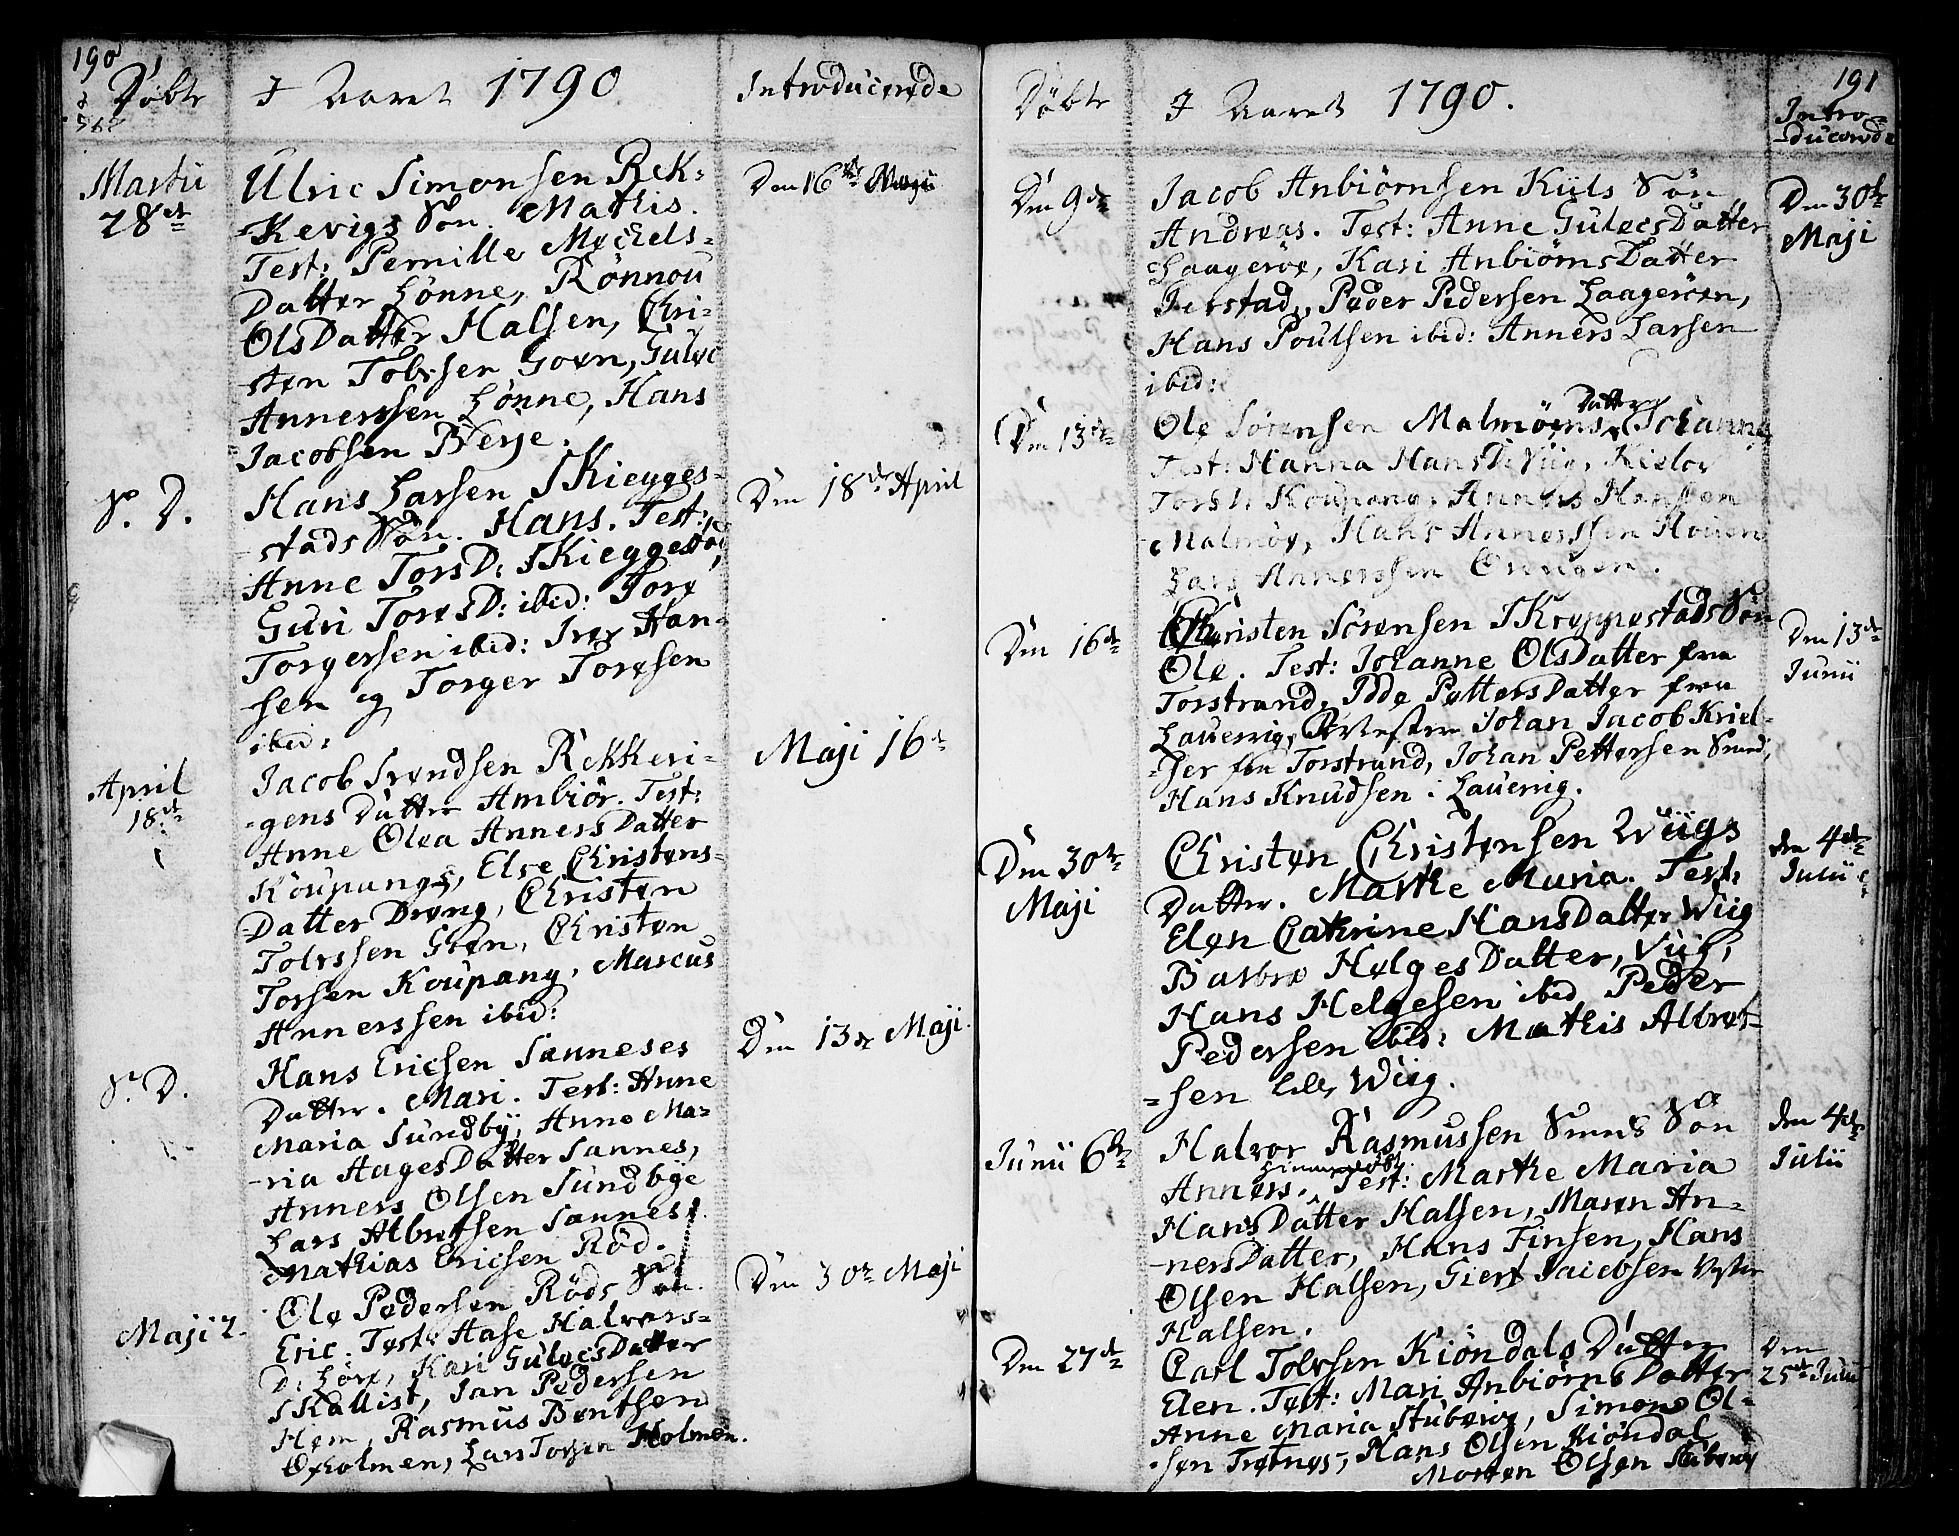 190
Döbte
I Aaret 1790
Introducerede
Martii
28de
Ulric Simonsen Rek-
Kevigs Søn. Mathis.
Test: Pernille Mechels-
Datter Lønne, Rønnou
OlsDatter Halsen, Chri-
sten Tolvsen Goen, Gulec
Annerssen Lønne, Hans
Jacobsen Berje.
Den 16de Maji
S. D.
Hans Larsen Skiegges-
stads Søn. Hans. Test:
Anne TorsD: Skieggestad,
Guri ToresD: ibid: Tore
Torgersen ibid: Iver Han-
sen og Torger Toresen
ibid:
Den 18de April
April
18de
Jacob Svendsen Rekkevi-
gens Datter Ambiør. Test:
Anne Olea AnnersDatter
Koupangs, Else Christens-
Datter Dreng, Christen
Tolvssen Goen, Christen
Torsen Koupang, Marcus
Annerssen ibid:
Maji 16de
S. D.
Hans Ericsen Sanneses
Datter. Mari. Test: Anne
Maria Sundby, Anne Ma-
ria AagesDatter Sannes,
Anners Olsen Sundbye
Lars Albretsen Sannes,
Mathias Ericsen Rød.
Den 13de Maji.
Maji 2.
Ole Pedersen Røds Søn.
Eric. Test: Aase Halvors-
D: Løve, Kari GulecsDatter
Skallist, Jan Pedersen
Hem, Rasmus Bentsen
Oxholmen, Lars Torsen Holmen.
Den 30te Maji
191
Döbte
I Aaret 1790.
Intro-
ducerede
Den 9de
Jacob Anbiørnsen Kiils Søn
Andreas. Test: Anne GulecsDatter
Laagerøe, Kari AnbiørnsDatter
Ferstad, Peder Pedersen Laagerøen,
Hans Poulsen ibid: Anners Larsen
ibid:
Den 30te
Maji
Den 13de
Datter
Ole Sørensen Malmøens Johanne
Test: Hanna HansD: Viig, Kielov
TorsD: Koupang, Anners Hansen
Malmøe, Hans Annerssen Houen
Lars Annerssen
Den 16de
Christen Sørensen Skreppestads Søn
Ole. Test: Johanne OlsDatter fra
Torstrand, Idde PettersDatter fra
Lauervig, Johan Jacob Kriel-
ser fra Torstrand, Johan Pettersen Smed,
Hans Knudsen i Lauervig.
Den 13de
Junii
Den 30te
Maji
Christen Christensen Wiigs
Datter. Marthe Maria. Test:
Elen Cathrine HansDatter Wiig
Barbro HelgesDatter, Viig,
Hans Helgesen ibid, Peder
Pedersen ibid: Mathis Albret-
sen lille Wiig.
den 4de
Julii
Junii 6te
Halvor Rasmussen Smeds Søn
Anners. Test: Marthe Maria
HansDatter Halsen, Maren An-
nersDatter, Hans Finsen, Hans
Olsen Halsen, Giert Jacobsen Vester
Halsen.
den 4de
Julii
Den 27de
Carl Tolvsen Kiøndals Datter
Elen. Test: Mari AnbiørnsDatter
Anne Maria Stuberøe, Simon Ol-
sen Trøtnes, Hans Olsen Kiøndal
Morten Olsen Stuberøe
Den
25de Julii